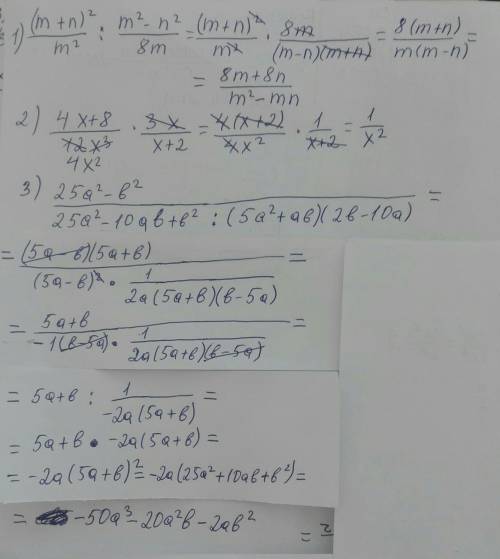 1) (m+n)²/m² : (m²-n²)/8m = (m+n)²/m² · 8m/(m-n)(m+n) = 8(m+n)/m(m-n) =
= 8m+8n/m²-mn
2) 4x+8/12x³ · 3x/x+2 = 4(x+2)/4x² · 1/x+2 = 1/x²
4x²
3) 25a²-b²/25a²-10ab+b² : (5a²+ab)(2b-10a) =
= (5a-b)(5a+b)/(5a-b)² · 1/2a(5a+b)(b-5a) =
= 5a+b/-1(b-5a) · 1/2a(5a+b)(b-5a) =
= 5a+b : 1/-2a(5a+b) =
= 5a+b · -2a(5a+b) =
= -2a(5a+b)² = -2a(25a²+10ab+b²) =
= -50a³-20a²b-2ab²
= ?